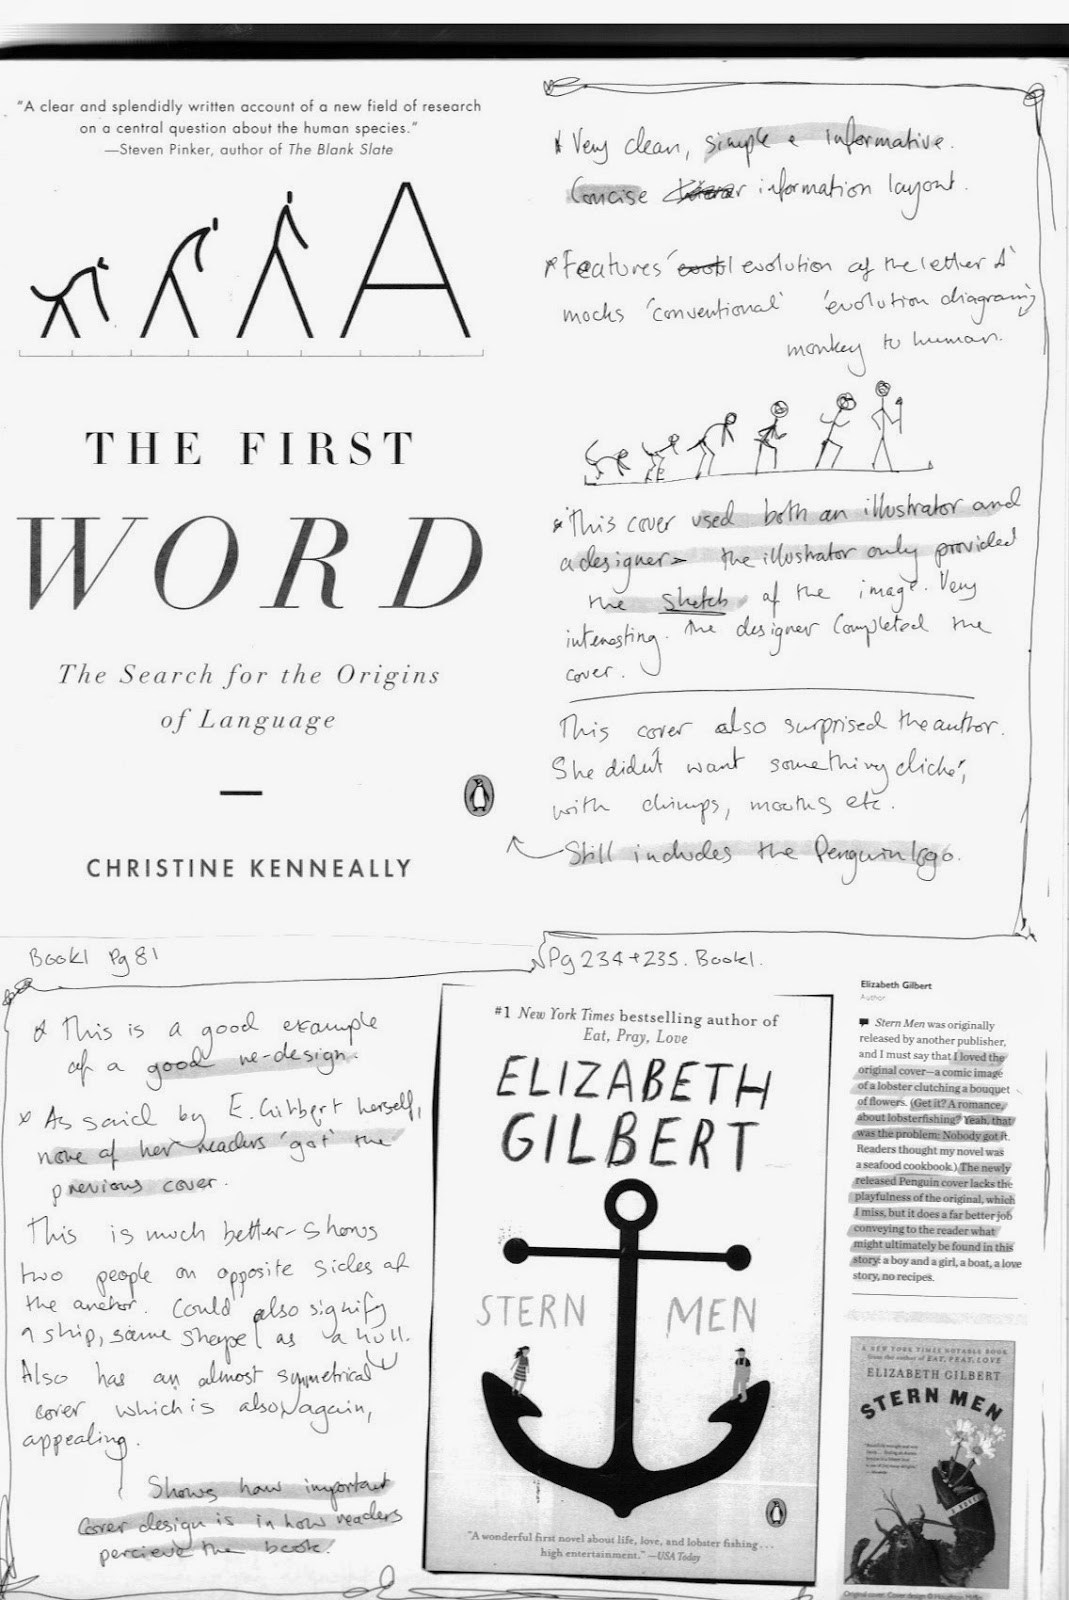 "A clear and splendidly written account of a new field of research
on a central question about the human species."
—Steven Pinker, author of The Blank Slate
THE FIRST
WORD
The Search for the Origins
of Language
CHRISTINE KENNEALLY
Very clean, simple & informative.
Concise information layout.
Features evolution of the letter 'A'
mocks 'conventional' 'evolution diagram'
monkey to human.
This cover used both an illustrator and
a designer - the illustrator only provided
the sketch of the image. Very
interesting. The designer completed the
cover.
This cover also surprised the author.
She didn't want something cliché,
with chimps, mouths etc.
Still includes the Penguin logo.
Book1 Pg 81
Pg 234 + 235. Book1.
This is a good example
of a good re-design.
As said by E. Gilbert herself,
none of her readers 'got' the
previous cover.
This is much better - shows
two people on opposite sides of
the anchor. Could also signify
a ship, same shape as a hull.
Also has an almost symmetrical
cover which is also, again,
appealing.
Shows how important
cover design is in how readers
percieve the book.
#1 New York Times bestselling author of
Eat, Pray, Love
ELIZABETH
GILBERT
STERN MEN
"A wonderful first novel about life, love, and lobster fishing . . .
high entertainment." —USA Today
Elizabeth Gilbert
Author
Stern Men was originally
released by another publisher,
and I must say that I loved the
original cover—a comic image
of a lobster clutching a bouquet
of flowers. (Get it? A romance,
about lobsterfishing? Yeah, that
was the problem: Nobody got it.
Readers thought my novel was
a seafood cookbook.) The newly
released Penguin cover lacks the
playfulness of the original, which
I miss, but it does a far better job
conveying to the reader what
might ultimately be found in this
story: a boy and a girl, a boat, a love
story, no recipes.
A NEW YORK TIMES NOTABLE BOOK
from the author of EAT, PRAY, LOVE
ELIZABETH GILBERT
STERN MEN